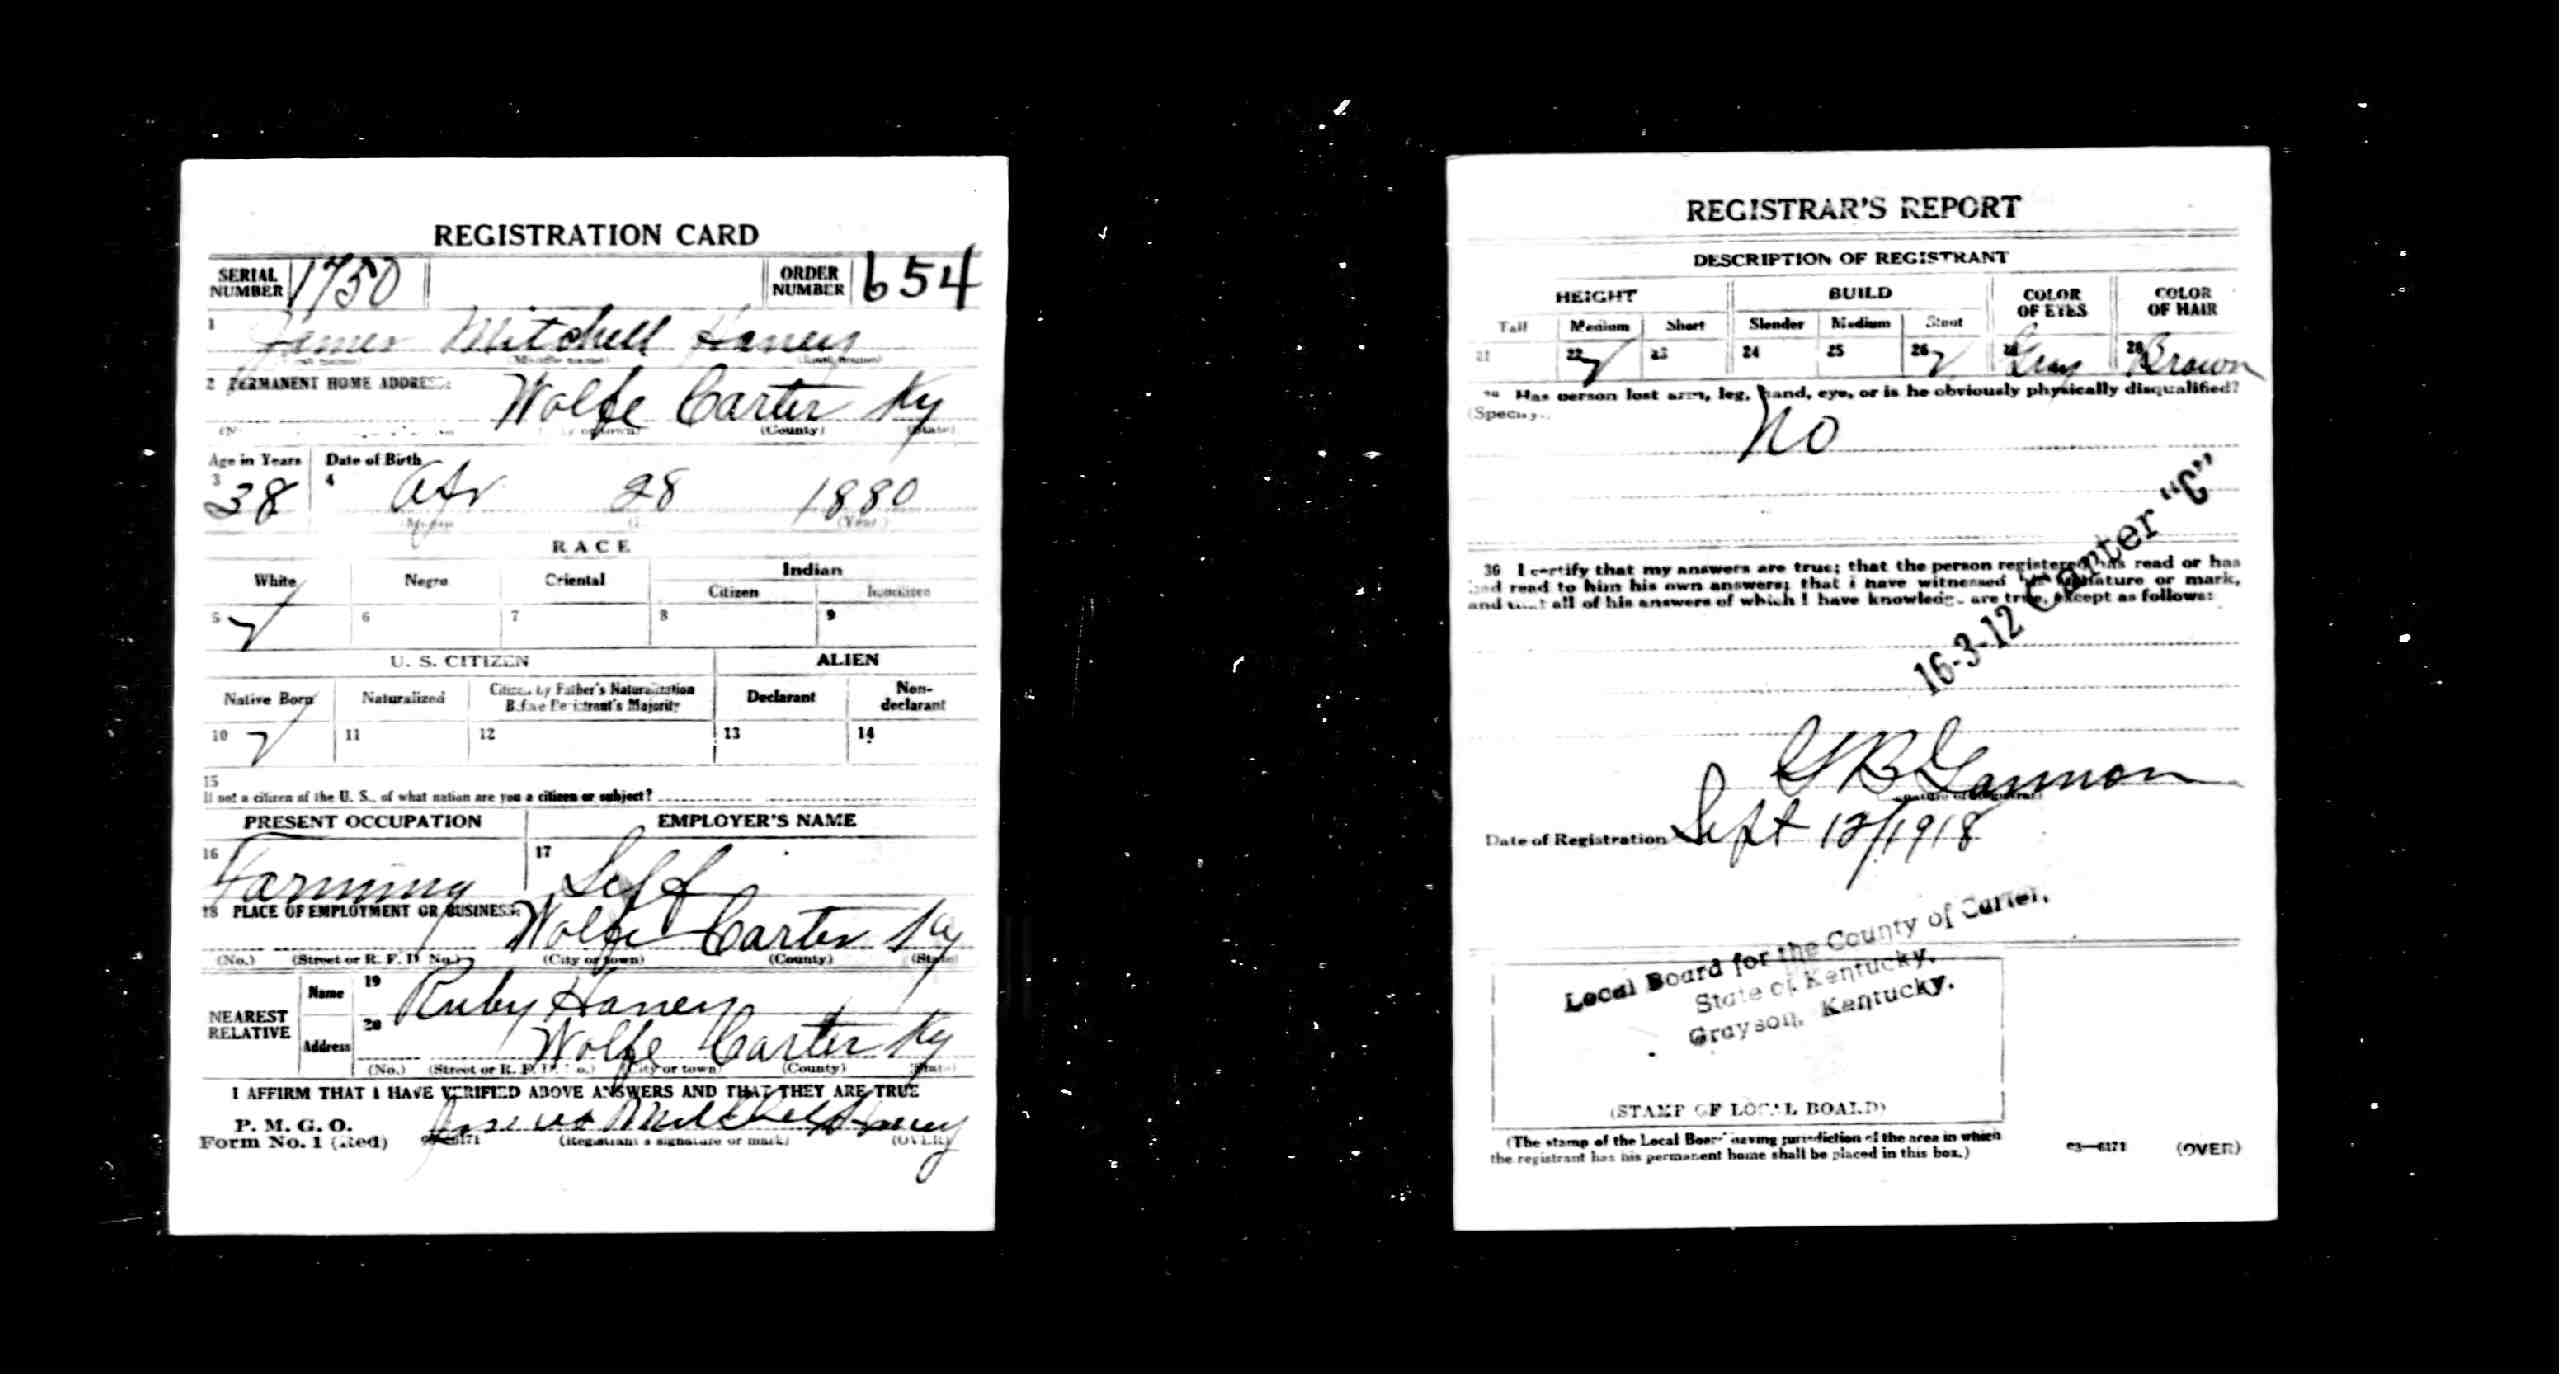 REGISTRATION CARD
SERIAL NUMBER 1750 ORDER NUMBER 654
1 James Mitchell Haney
(Middle name)
2 PERMANENT HOME ADDRESS:
Wolfe Carter Ky
(County) (State)
Age in Years Date of Birth
3 38 4 Apr 28 1880
(Year)
RACE
White Negro Oriental Indian
Citizen
5 ✓ 6 7 8 9
U. S. CITIZEN ALIEN
Native Born Naturalized Citizen by Father's Naturalization Before Registrant's Majority Declarant Non-declarant
10 ✓ 11 12 13 14
15
If not a citizen of the U. S., of what nation are you a citizen or subject?
PRESENT OCCUPATION EMPLOYER'S NAME
16 Farming 17 Self
18 PLACE OF EMPLOYMENT OR BUSINESS:
Wolfe Carter Ky
(No.) (Street or R. F. D. No.) (City or town) (County) (State)
NEAREST RELATIVE Name 19 Ruby Haney
Address 20 Wolfe Carter Ky
(No.) (Street or R. F. D. No.) (City or town) (County) (State)
I AFFIRM THAT I HAVE VERIFIED ABOVE ANSWERS AND THAT THEY ARE TRUE
P. M. G. O.
Form No. 1 (Red) James Mitchell Haney
(Registrant's signature or mark) (OVER)
REGISTRAR'S REPORT
DESCRIPTION OF REGISTRANT
HEIGHT BUILD COLOR OF EYES COLOR OF HAIR
Tall Medium Short Slender Medium Stout
21 22 ✓ 23 24 25 26 ✓ Gray 28 Brown
Has person lost arm, leg, hand, eye, or is he obviously physically disqualified?
(Specify.)
No
30 I certify that my answers are true; that the person registered has read or has
had read to him his own answers; that I have witnessed his signature or mark,
and that all of his answers of which I have knowledge are true, except as follows:
16-3-12 Carter "C"
G B Gannon
(Signature of Registrar)
Date of Registration Sept 12/1918
Local Board for the County of Carter,
State of Kentucky,
Grayson, Kentucky.
(STAMP OF LOCAL BOARD)
(The stamp of the Local Board having jurisdiction of the area in which
the registrant has his permanent home shall be placed in this box.)
03—6171 (OVER)